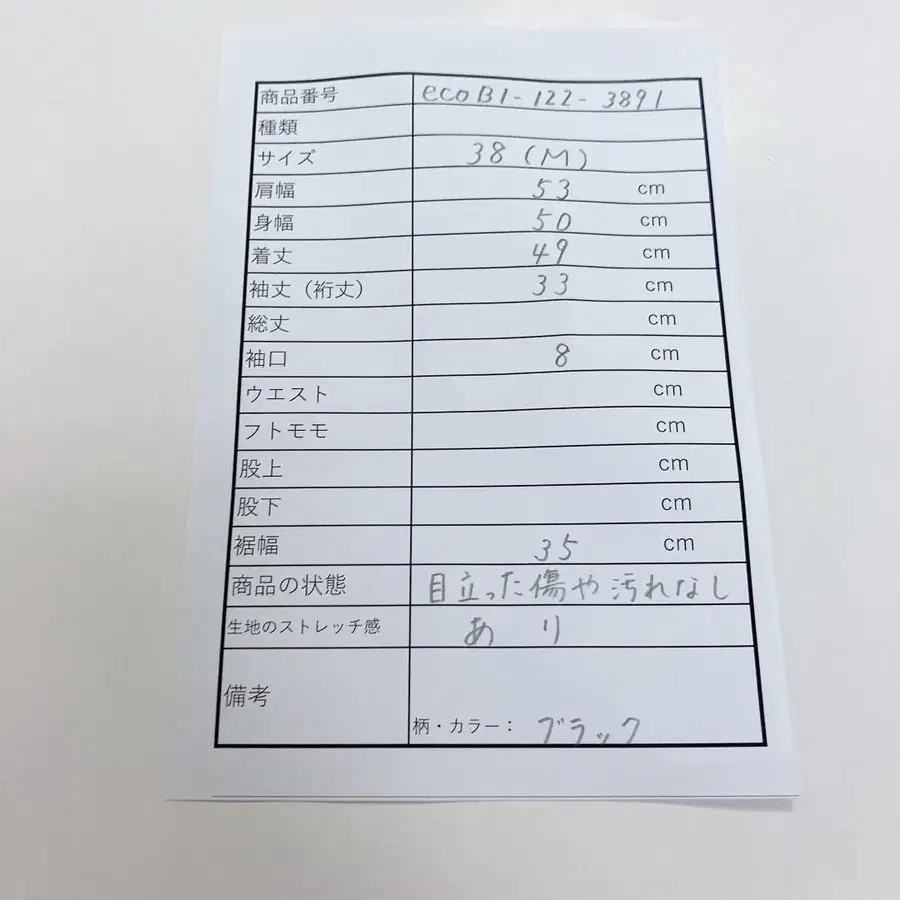 商品番号 ecoB1-122-3891
種類
サイズ 38(M)
肩幅 53 cm
身幅 50 cm
着丈 49 cm
袖丈（裄丈） 33 cm
総丈 cm
袖口 8 cm
ウエスト cm
フトモモ cm
股上 cm
股下 cm
裾幅 35 cm
商品の状態 目立った傷や汚れなし
生地のストレッチ感 あり
備考
柄・カラー： ブラック